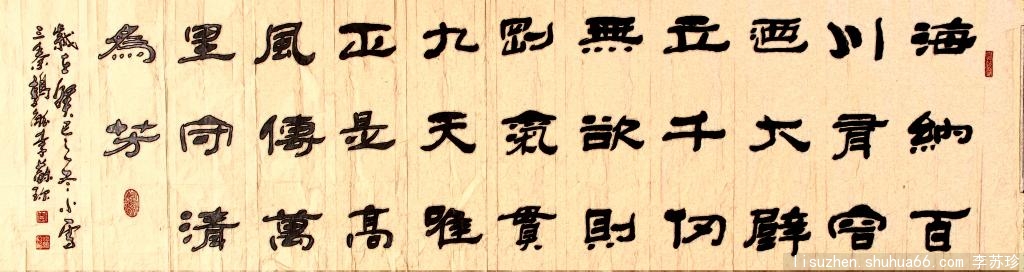 海納百
川有容
迺大壁
立千仞
無欲則
剛氣貫
九天唯
正是高
風傳萬
里守清
為芳
歲在癸巳之冬小雪
三秦李蘇珍
lisuzhen.shuhua66.com 李苏珍